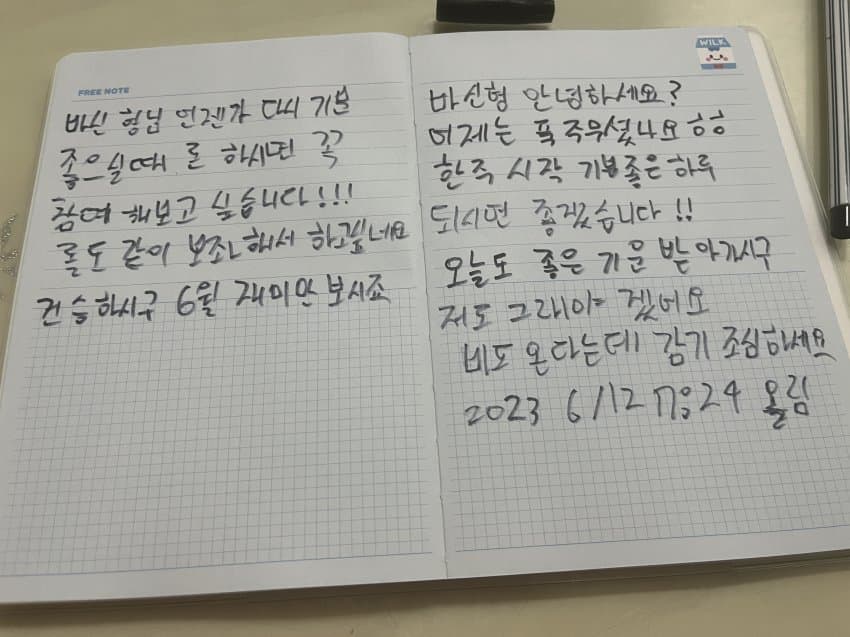 FREE NOTE
바신 형님 언젠가 다시 기분
좋으실때 론 하시면 꼭
참여 해보고 싶습니다!!!
롤도 같이 보조 해서 하고싶네요
건승하시구 6월 재미만 보시죠
WILK
바신형 안녕하세요?
어제는 푹 주무셨나요 ㅎㅎ
한주 시작 기분좋은 하루
되시면 좋겠습니다!!
오늘도 좋은 기운 받아가시구
저도 그래야 겠어요
비도 온다는데 감기 조심하세요
2023 6/12 17:24 올림